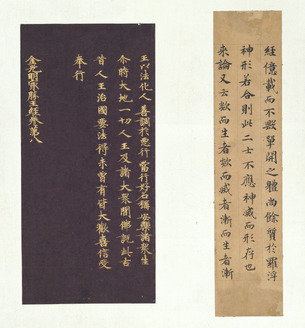 經億載而不毀單開之體尚餘質於羅浮
神形若合則此二士不應神滅而形存也
來論又云欻而生者欻而滅者漸而生者漸
王以法化人善調於惡行當得好名稱安樂諸衆生
尒時大地一切人王及諸大衆聞佛說此古
昔人王治國要法得未曾有皆大歡喜信受
奉行
金光明最勝王經卷第八